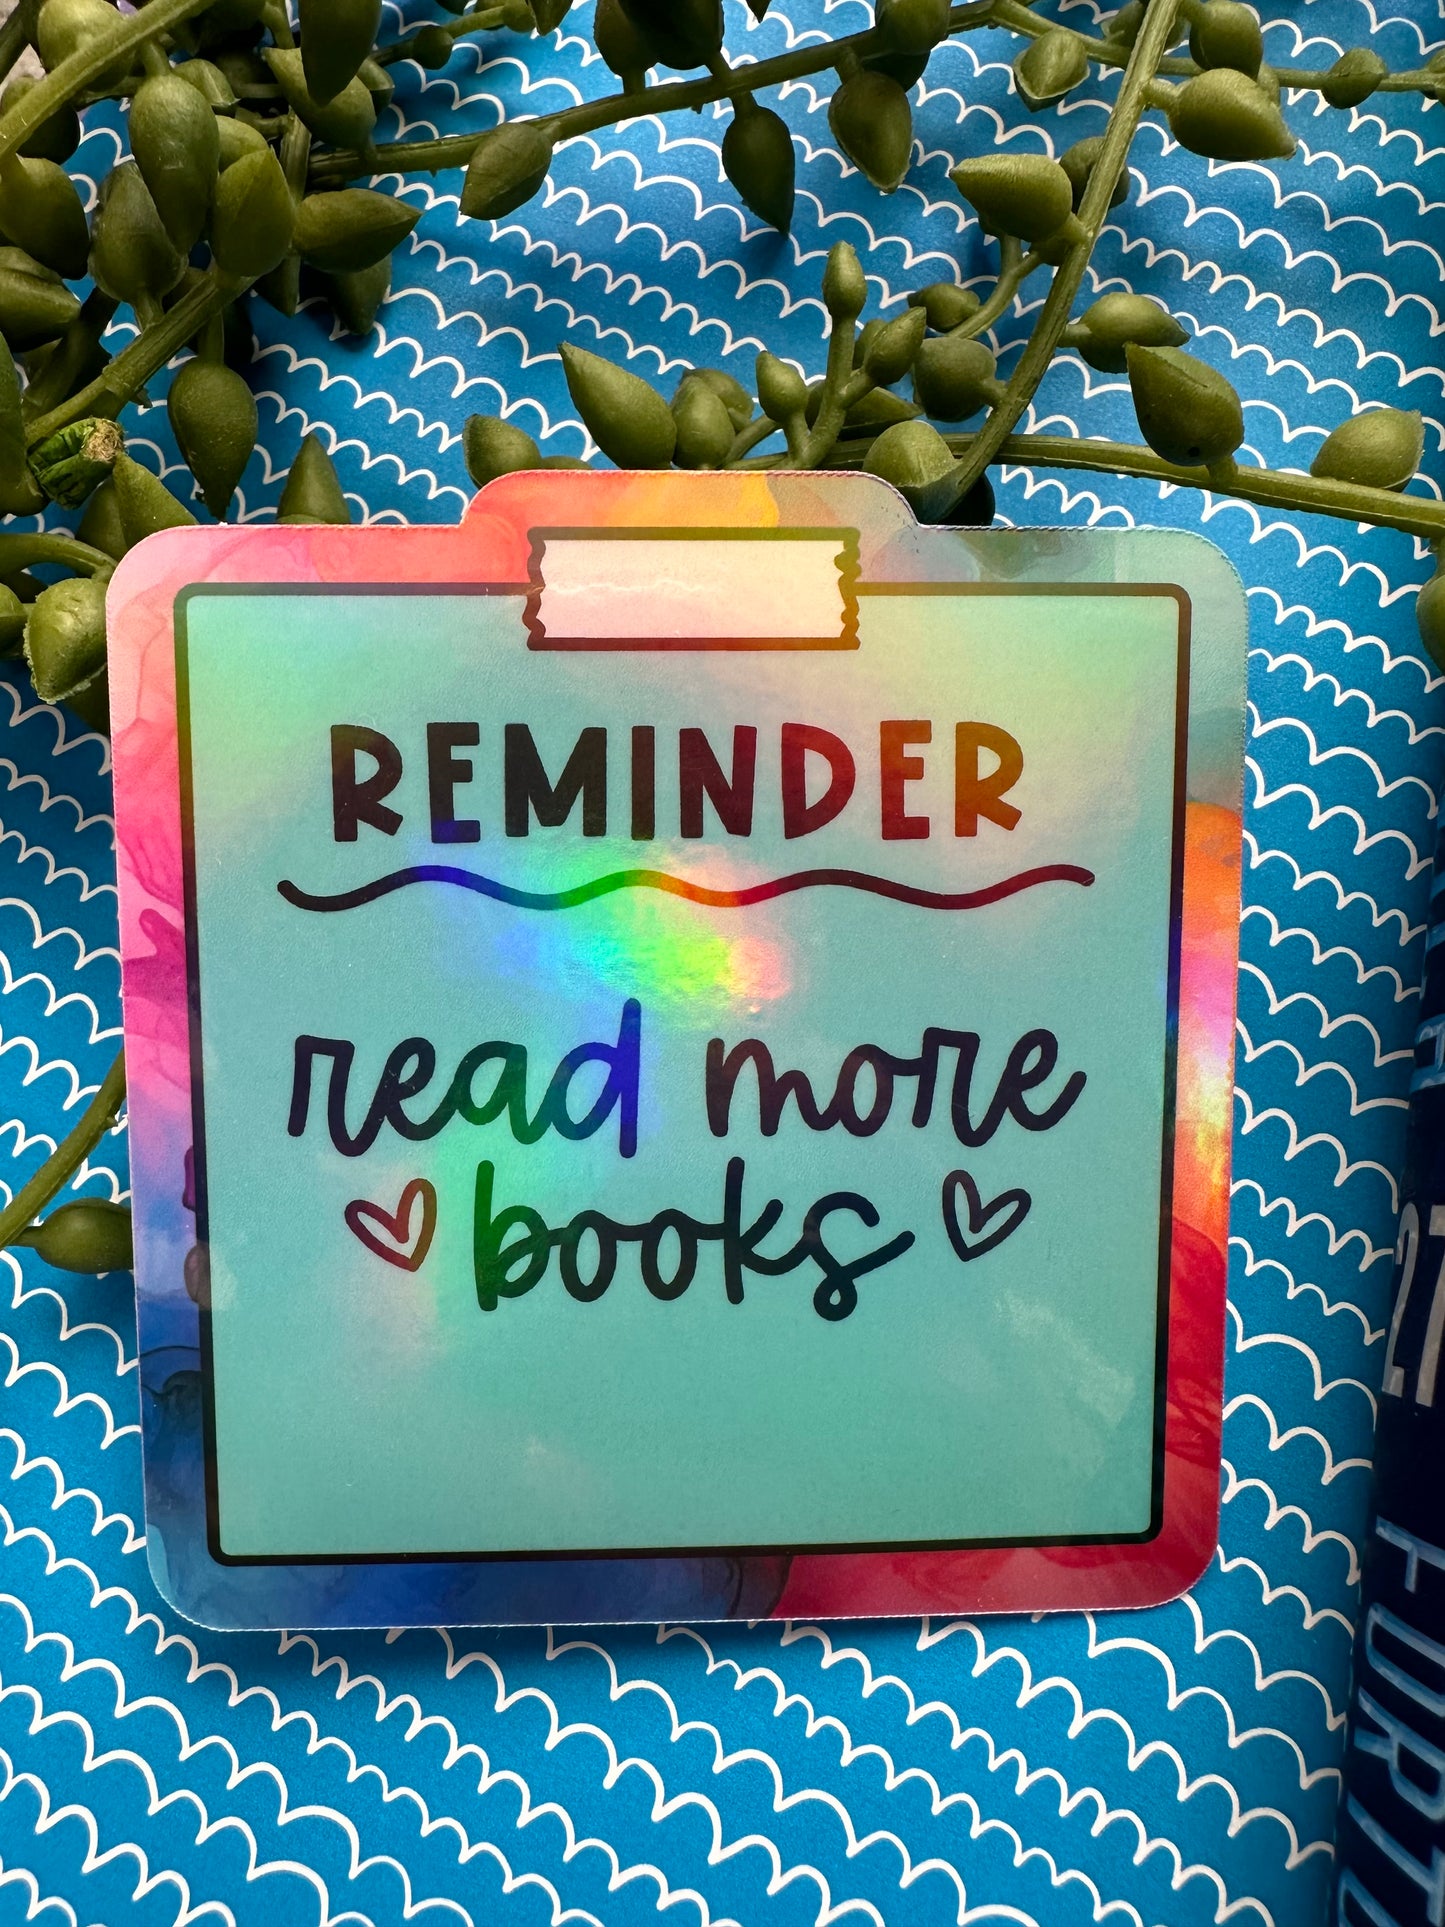 REMINDER
read more
books